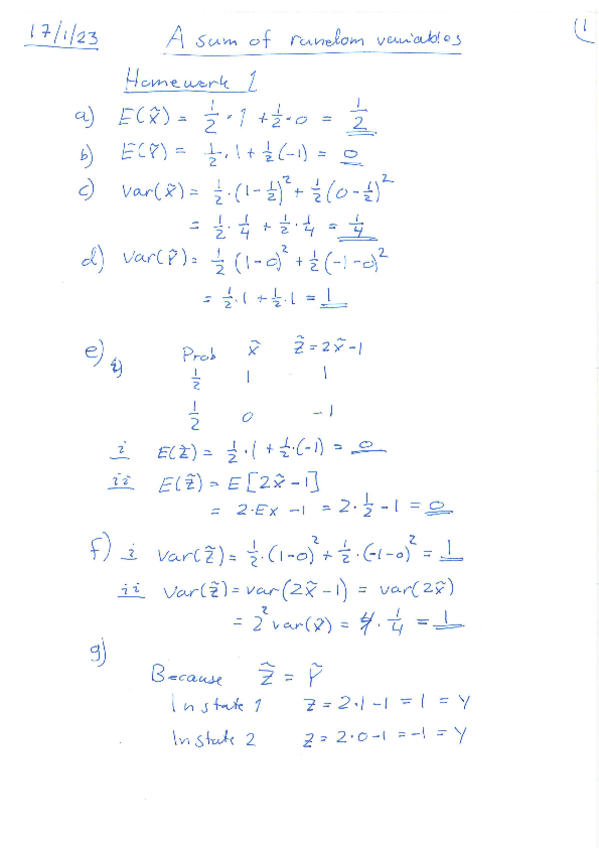 17/1/23 A sum of random variables (1
Homework 1
a) E(x̃) = 1/2 · 1 + 1/2 · 0 = 1/2
b) E(Ỹ) = 1/2 · 1 + 1/2 (-1) = 0
c) Var(x̃) = 1/2 · (1 - 1/2)² + 1/2 (0 - 1/2)²
= 1/2 · 1/4 + 1/2 · 1/4 = 1/4
d) Var(Ỹ) = 1/2 (1-0)² + 1/2 (-1-0)²
= 1/2 · 1 + 1/2 · 1 = 1
e) i) Prob x̃ z̃ = 2x̃ - 1
1/2 1 1
1/2 0 -1
i E(z̃) = 1/2 · 1 + 1/2 · (-1) = 0
ii E(z̃) = E[2x̃ - 1]
= 2·Ex - 1 = 2 · 1/2 - 1 = 0
f) i Var(z̃) = 1/2 · (1-0)² + 1/2 · (-1-0)² = 1
ii Var(z̃) = var(2x̃ - 1) = var(2x̃)
= 2² var(x̃) = 4 · 1/4 = 1
g)
Because z̃ = Ỹ
In state 1 z = 2·1 - 1 = 1 = Y
In state 2 z = 2·0 - 1 = -1 = Y